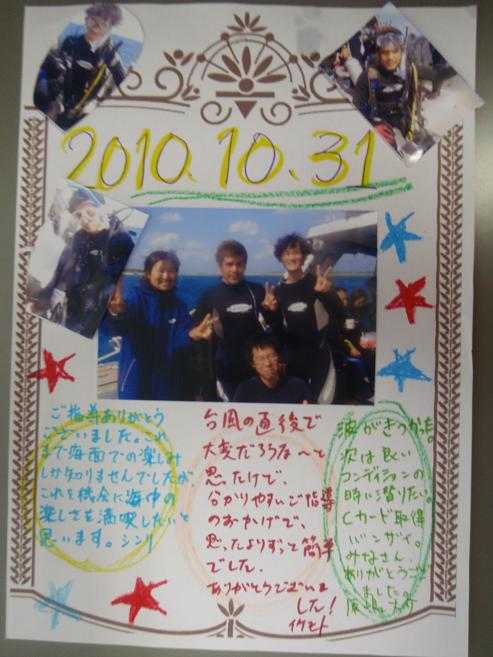 2010.10.31
ご指導ありがとう
ございました。これ
まで海面での楽しみ
しか知りませんでしたが
これを機会に海中の
楽しさを満喫したいと
思います。シンリ
台風の直後で
大変だろうな〜と
思ったけど、
分かりやすいご指導
のおかげで、
思ったよりずっと簡単
でした。
ありがとうございま
した!
イケモト
波がきつかった。
次は良い
コンディションの
時に潜りたい。
Cカード取得
バンザイ。
みなさん、
ありがとうご
ざいました。